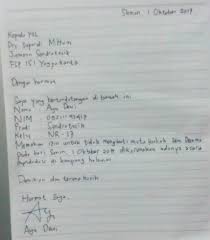 Senin, 1 Oktober 2019
Kepada Yth.
Drs. Supardi M.Hum
Jurusan Sendratasik
FSP ISI Yogyakarta
Dengan hormat
Saya yang bertandatangan di bawah ini
Nama : Ayu Dewi
NIM
Prodi : Sendratasik
Kelas : NR-17
Memohon izin untuk tidak mengikuti mata kuliah Seni Drama
pada hari Senin, 1 Oktober 2019 dikarenakan adanya acara
di kampung halaman
Demikian dan terima kasih
Hormat Saya,
Ayu Dewi